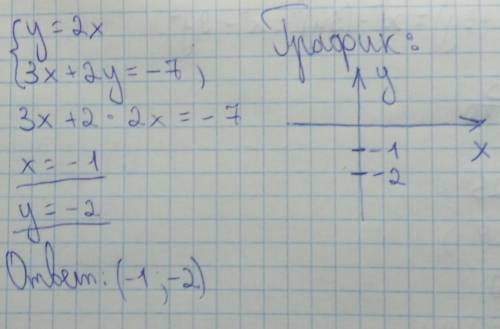 { y = 2x
3x + 2y = -7,
3x + 2 · 2x = -7
x = -1
y = -2
Ответ: (-1; -2)
График:
y
x
-1
-2